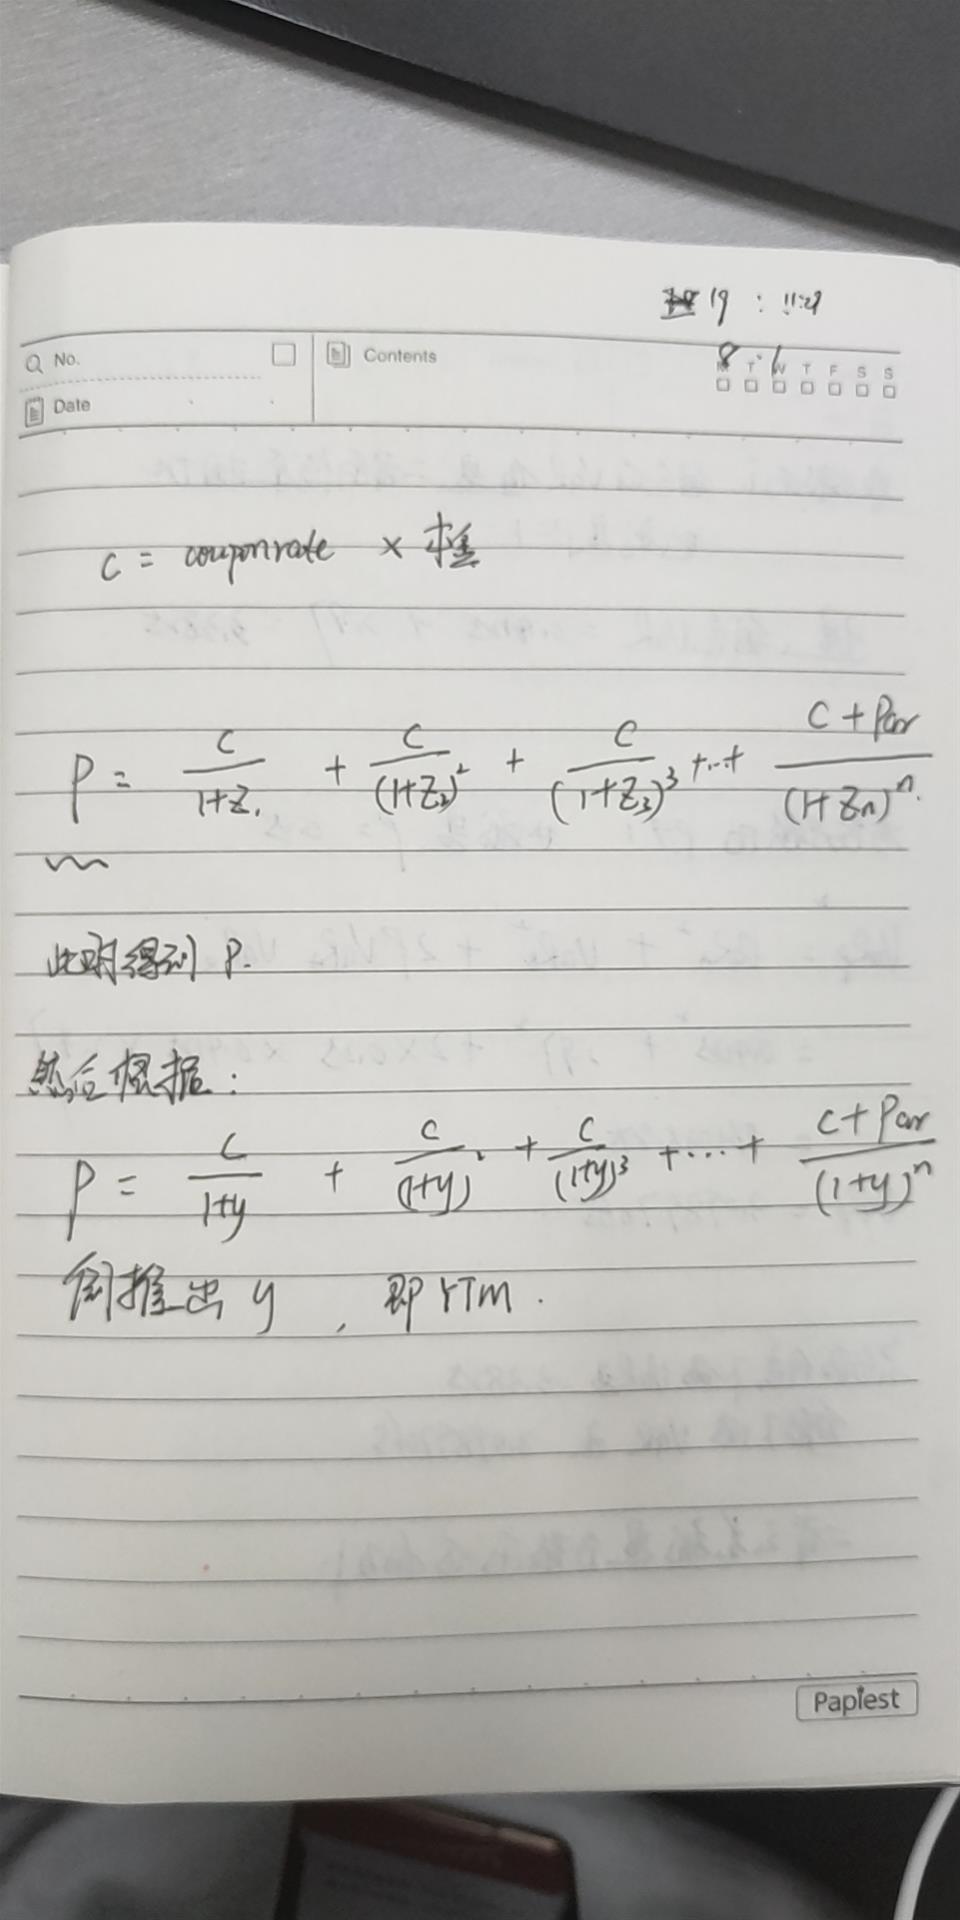 19 : 11:27
8 . 1
No.
Contents
M T W T F S S
Date
C = couponrate × 本金
P = \frac{C}{1+Z_1} + \frac{C}{(1+Z_2)^2} + \frac{C}{(1+Z_3)^3} +...+ \frac{C+Par}{(1+Z_n)^n}.
此时得到 P.
然后根据:
P = \frac{C}{1+y} + \frac{C}{(1+y)^2} + \frac{C}{(1+y)^3} +...+ \frac{C+Par}{(1+y)^n}
倒推出 y , 即YTM.
Papiest